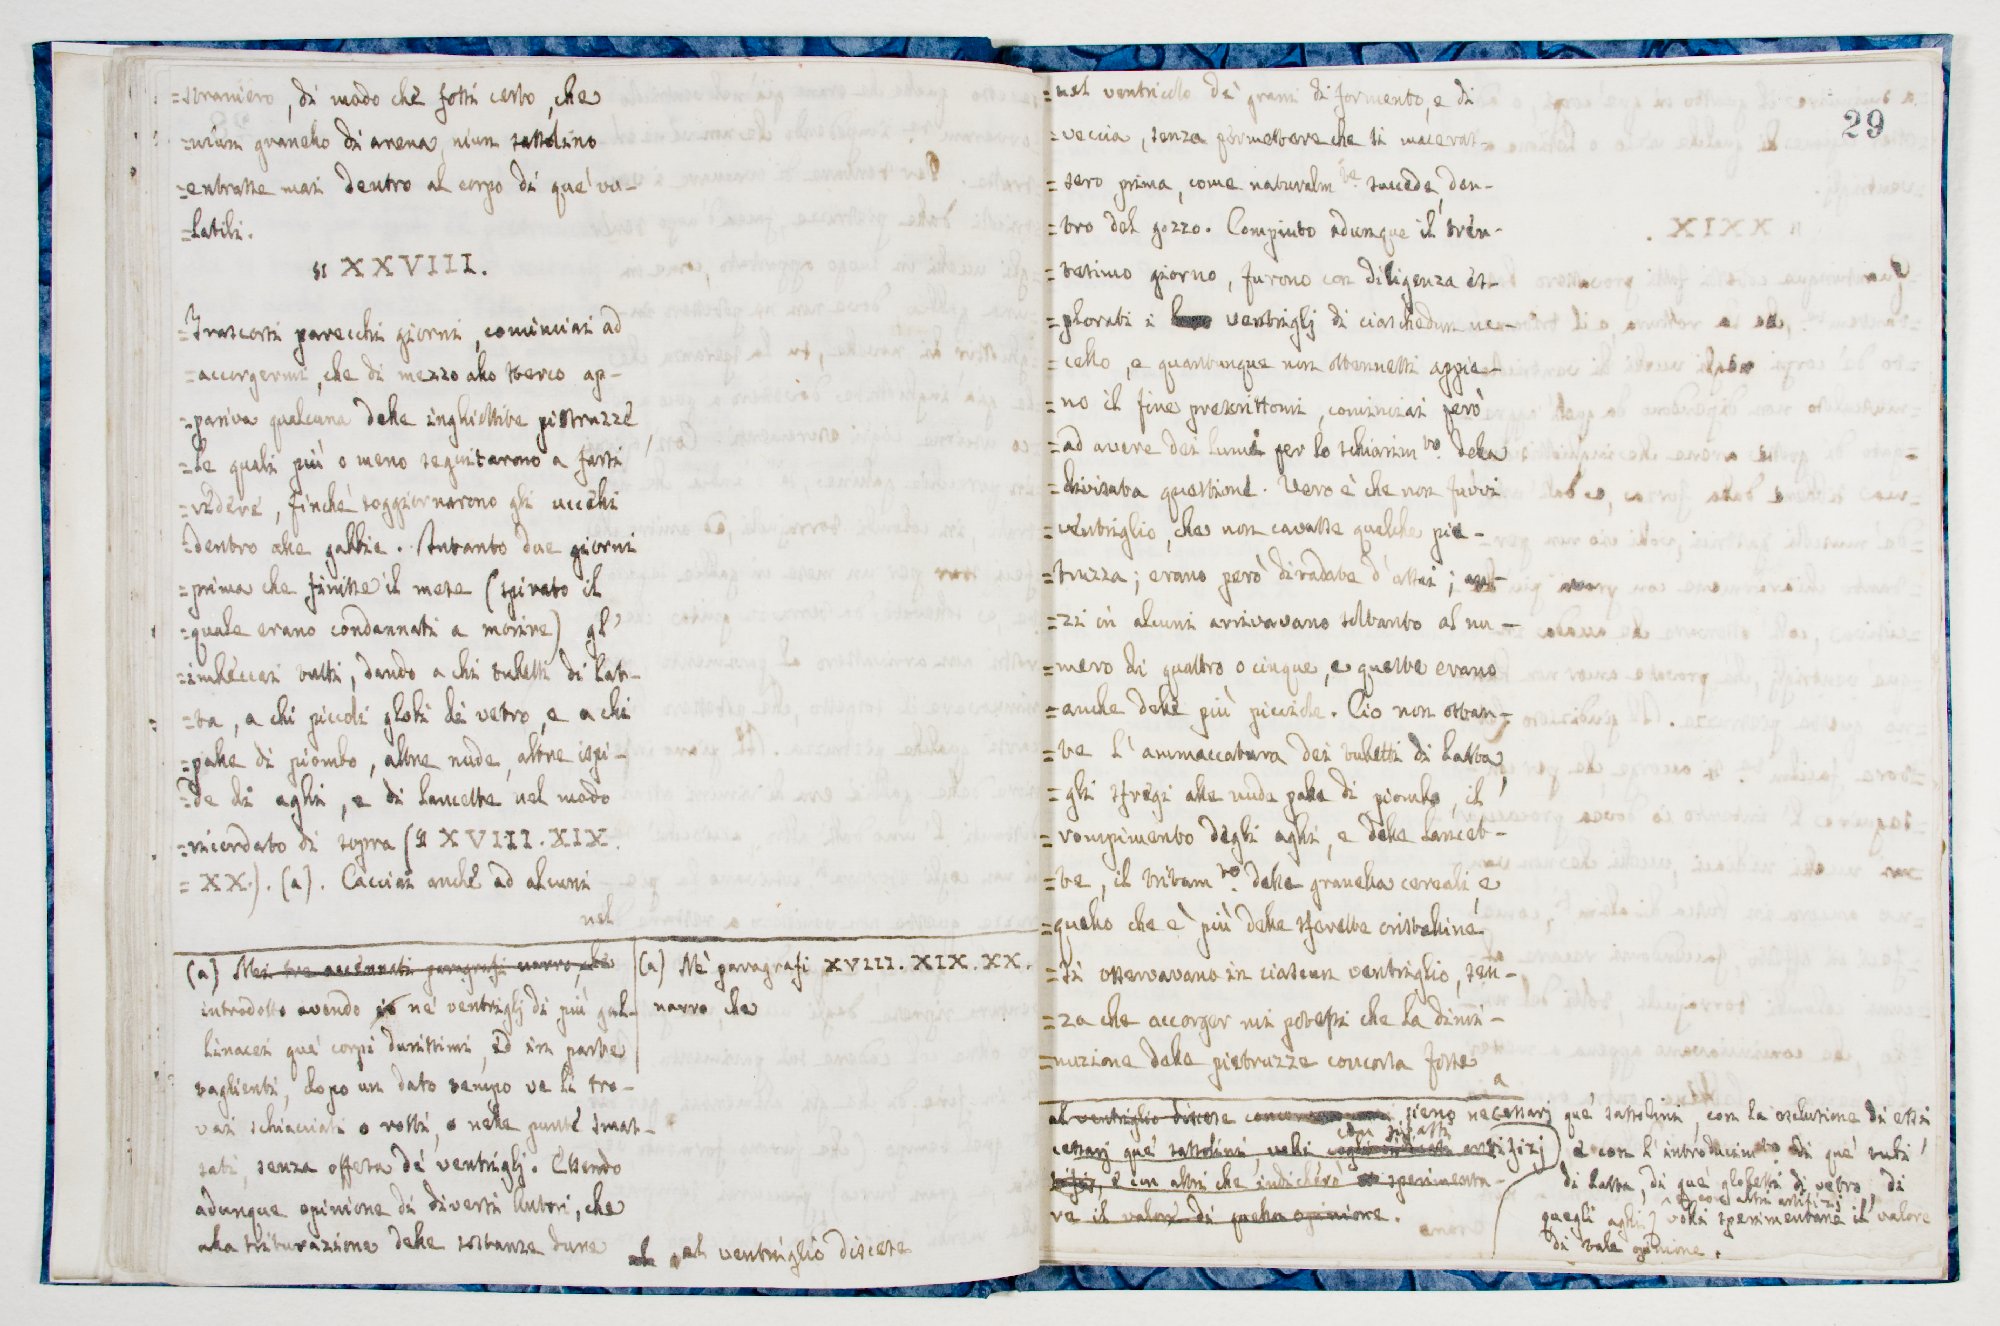 =straniero, di modo che fossi certo, che
=niun granello di arena, niun sassolino
=entrasse mai dentro al corpo di que' vo-
=latili.
§ XXVIII.
=Trascorsi parecchi giorni, cominciai ad
=accorgermi, che di mezzo allo sterco ap-
=pariva qualcuna delle inghiottite pietruzze,
=le quali più o meno seguitarono a farsi
=vedere, finché soggiornarono gli uccelli
=dentro alle gabbie. Intanto due giorni
=prima che finisse il mese (spirato il
=quale erano condannati a morire) gl'
=imbeccai tutti, dando a chi tubetti di lat-
=ta, a chi piccoli globi di vetro, e a chi
=palle di piombo, altre nude, altre ispi-
=de di aghi, e di lancette nel modo
=ricordato di sopra (§ XVIII. XIX.
=XX.). (a). Cacciai anche ad alcuni
nel
(a) Nei tre accennati paragrafi narro, che
introdotto avendo io ne' ventriglj di più gal-
linacei que' corpi durissimi, ed in parte
taglienti, dopo un dato tempo ve li tro-
vai schiacciati o rotti, o nelle punte smus-
sati, senza offesa de' ventriglj. Essendo
adunque opinione di diversi Autori, che
alla triturazione delle sostanze dure
(a) Ne' paragrafi XVIII. XIX. XX.
narro che
al ventriglio discese
29
=nel ventricolo dei grani di formento, e di
=veccia, senza permettere che si maceras-
=sero prima, come naturalm.te succede, den-
=tro del gozzo. Compiuto adunque il tren-
=tesimo giorno, furono con diligenza es-
=plorati i ventriglj di ciaschedun uc-
=cello, e quantunque non ottenessi appie-
=no il fine prescrittomi, cominciai però
=ad avere dei lumi per lo schiarim.to della
=divisata questione. Vero è che non fuvvi
=ventriglio, che non cavasse qualche pie-
=truzza; erano però diradate d'assai; an-
=zi in alcuni arrivavano soltanto al nu-
=mero di quattro o cinque, e queste erano
=anche delle più picciole. Ciò non ostan-
=te l'ammaccatura dei tubetti di latta,
=gli sfregi alle nude palle di piombo, il
=rompimento degli aghi, e delle lancet-
=te, il tritam.to delle granella cereali, e
=quello che è più delle sferette cristalline
=si osservavano in ciascun ventriglio, sen-
=za che accorger mi potessi che la dimi-
=nuzione delle pietruzze concorsa fosse
a
al ventriglio discese sieno necessarj que' sassolini, con la esclusione di essi
cessarj que' sassolini, volli con sì fatti artifizj e con l'introducim.to di que' tubi
e con altri che indicherò sperimenta- di latta, di que' globetti di vetro, di
re il valor di quella opinione. quegli aghi, e con altri artifizj volli sperimentare il valore
di tale opinione.